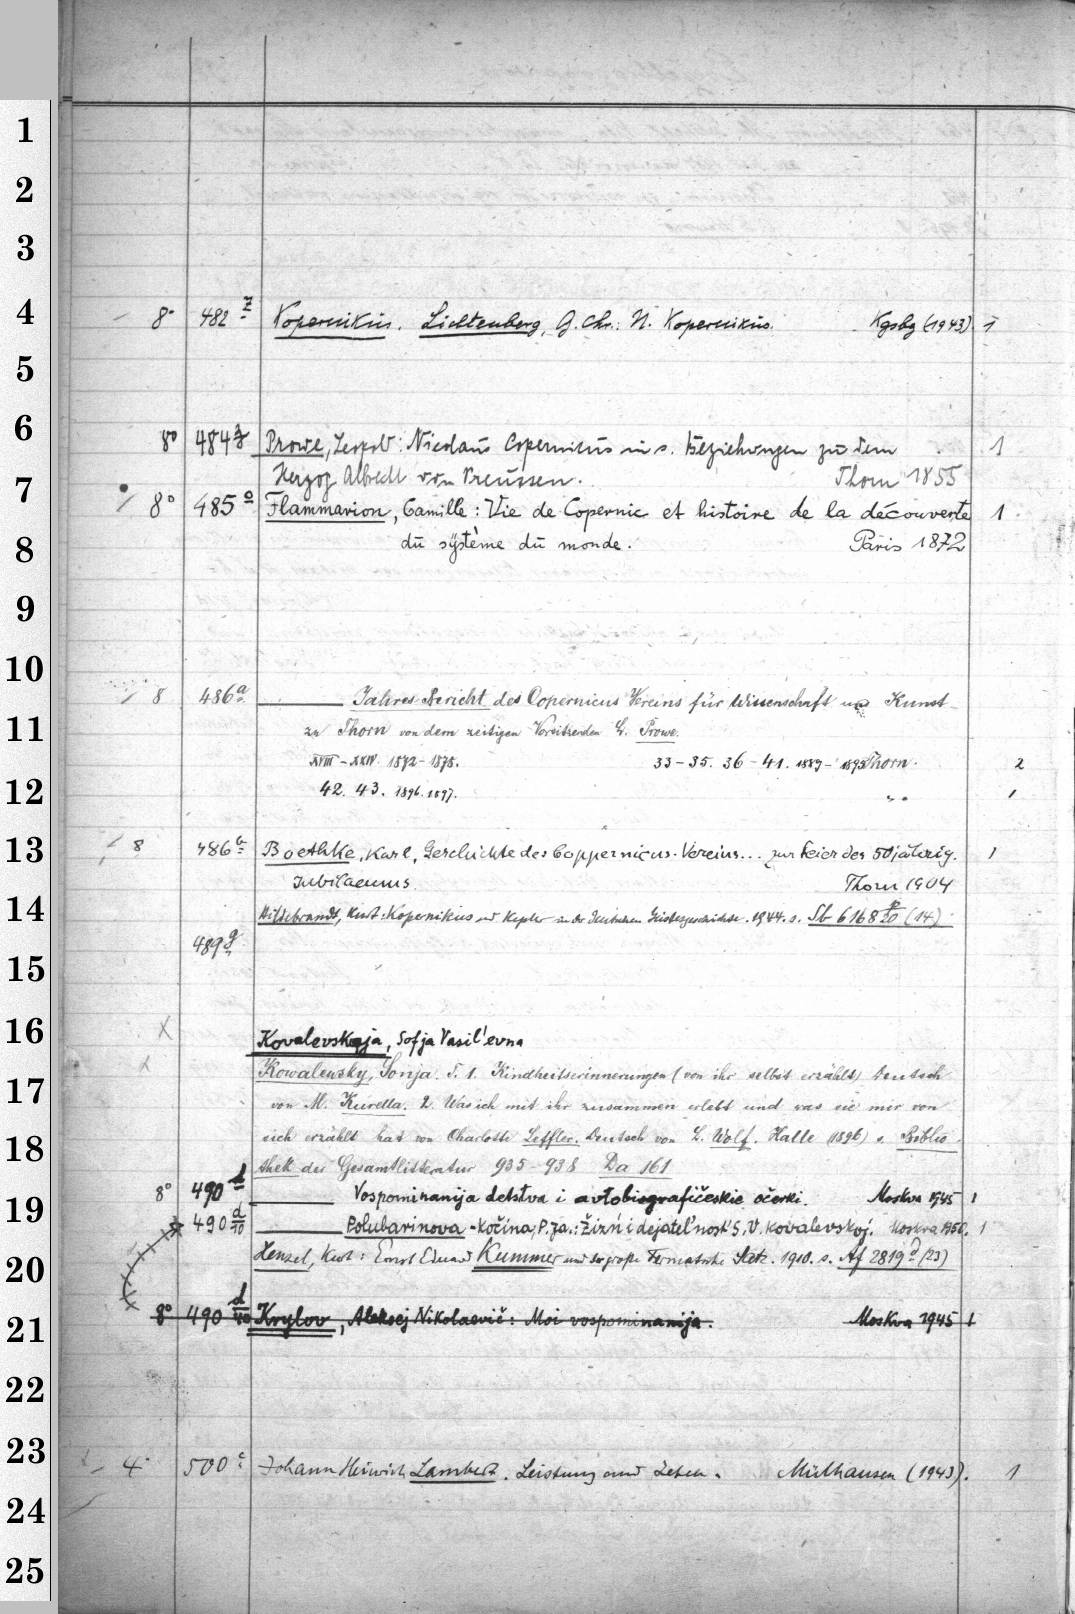 1
2
3
4
8° 482 z Kopernikus. Lichtenberg, G. Chr.: N. Kopernikus. Kgsbg (1943) 1
5
6
8° 484 Prowe, Leopold: Nicolaus Copernicus in s. Beziehungen zu dem 1
Herzog Albrecht von Preussen. Thorn 1855
7
8° 485 o Flammarion, Camille: Vie de Copernic et histoire de la découverte 1
8
du système du monde. Paris 1872
9
10
8 486 a Jahres-Bericht des Copernicus Vereins für Wissenschaft und Kunst
11
zu Thorn von dem zeitigen Vorsitzenden L. Prowe.
XVIII-XXIV. 1872-1878. 33-35. 36-41. 1889-1895 Thorn. 2
12
42. 43. 1896. 1897. " 1
13
8 486 b Boethke, Karl, Geschichte des Coppernicus-Vereins... zur Feier des 50jährig. 1
Jubilaeums. Thorn 1904
14
Hildebrandt, Kurt: Kopernikus und Kepler in der Deutschen Geistesgeschichte. 1944. s. Sb 6168 (14)
489 g
15
16
Kovalevskaja, Sofja Vasil'evna
Kowalewsky, Sonja. T. 1. Kindheitserinnerungen (von ihr selbst erzählt) Deutsch
17
von M. Kurella. 2. Was ich mit ihr zusammen erlebt und was sie mir von
18
sich erzählt hat von Charlotte Leffler. Deutsch von L. Wolf. Halle (1896) s. Biblio-
thek der Gesamtlitteratur 935-938 Da 161
19
8° 490 d Vospominanija detstva i avtobiografičeskie očerki. Moskva 1945 1
490 d/10 Polubarinova-Kočina, P. Ja.: Žizń i dejatel'nost' S. V. Kovalevskoj. Moskva 1950. 1
20
Hensel, Kurt: Ernst Eduard Kummer und der große Fermatsche Satz. 1910. s. Af 2819 d (23)
21
8° 490 d/40 Krylov, Aleksej Nikolaevič: Moi vospominanija. Moskva 1945 1
22
23
4° 500 c Johann Heinrich Lambert. Leistung und Leben. Mülhausen (1943). 1
24
25